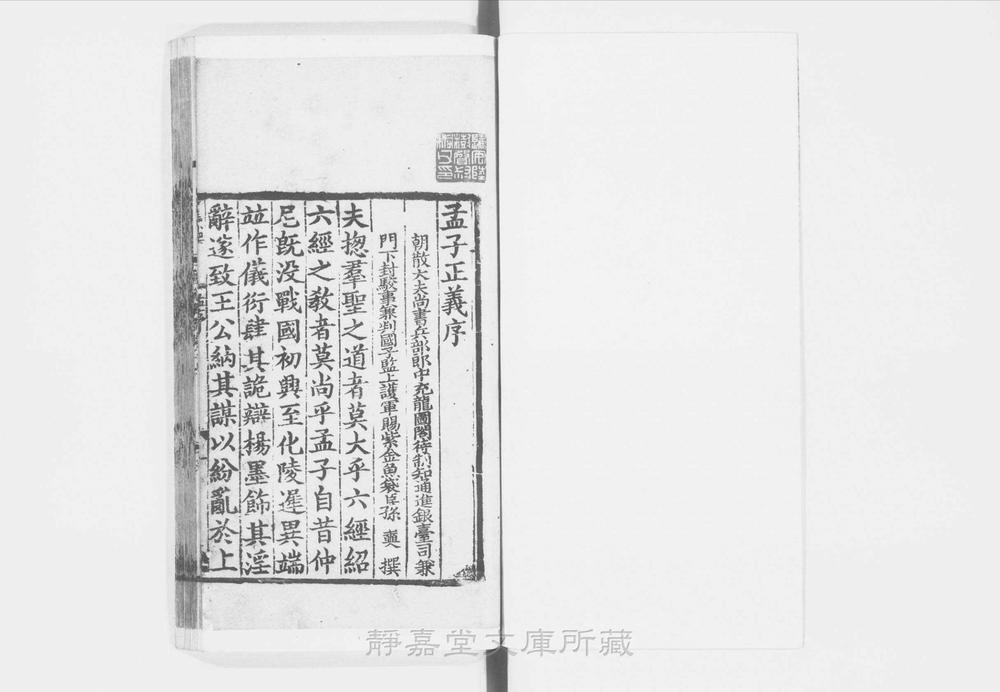 孟子正義序
朝散大夫尚書兵部郎中充龍圖閣待制知通進銀臺司兼
門下封駁事兼判國子監上護軍賜紫金魚袋臣孫 奭 撰
夫揔羣聖之道者莫大乎六經紹
六經之敎者莫尚乎孟子自昔仲
尼旣没戰國初興至化陵遲異端
並作儀衍肆其詭辯楊墨飾其淫
辭遂致王公納其謀以紛亂於上
靜嘉堂文庫所藏